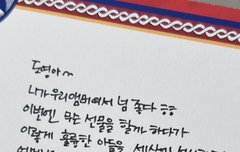 도영아~
나가 우리 멤버여서 넘 좋다 ㅎㅎ
이번엔 무슨 선물을 할까 하다가
이렇게 훌륭한 아들을 세상에